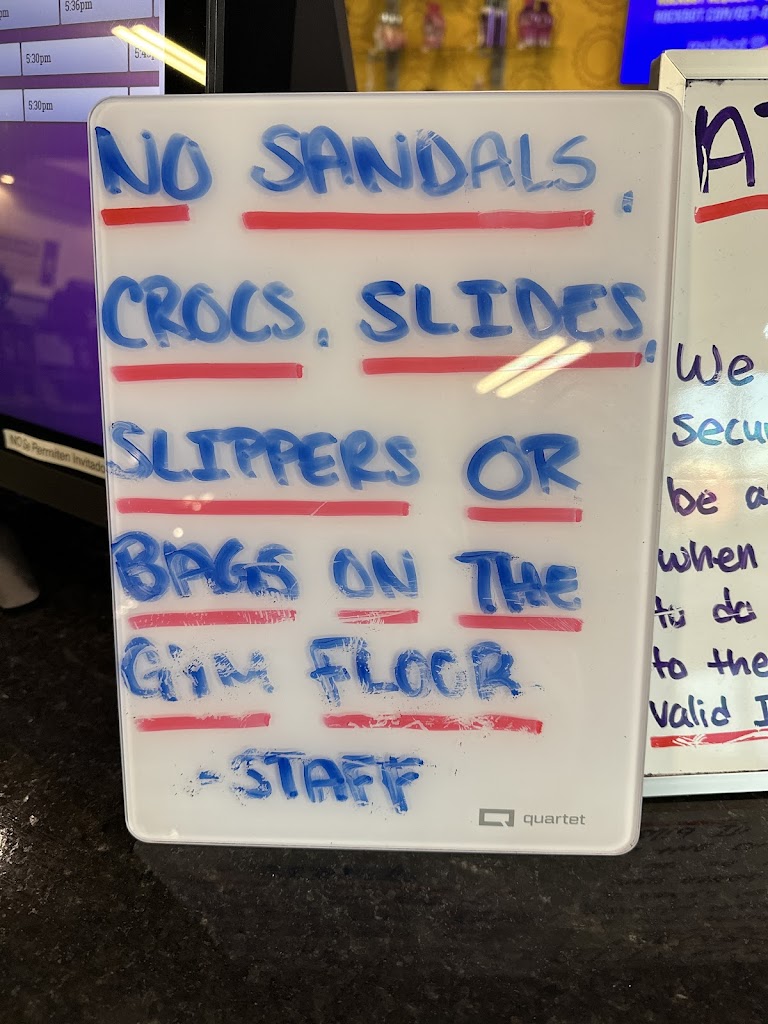 5:36pm
5:30pm
5:30pm
NO Se Permiten Invitado
NO SANDALS,
CROCS, SLIDES,
SLIPPERS OR
BAGS ON THE
GYM FLOOR
-STAFF
quartet
We
be a
when
to do
to the
Valid I